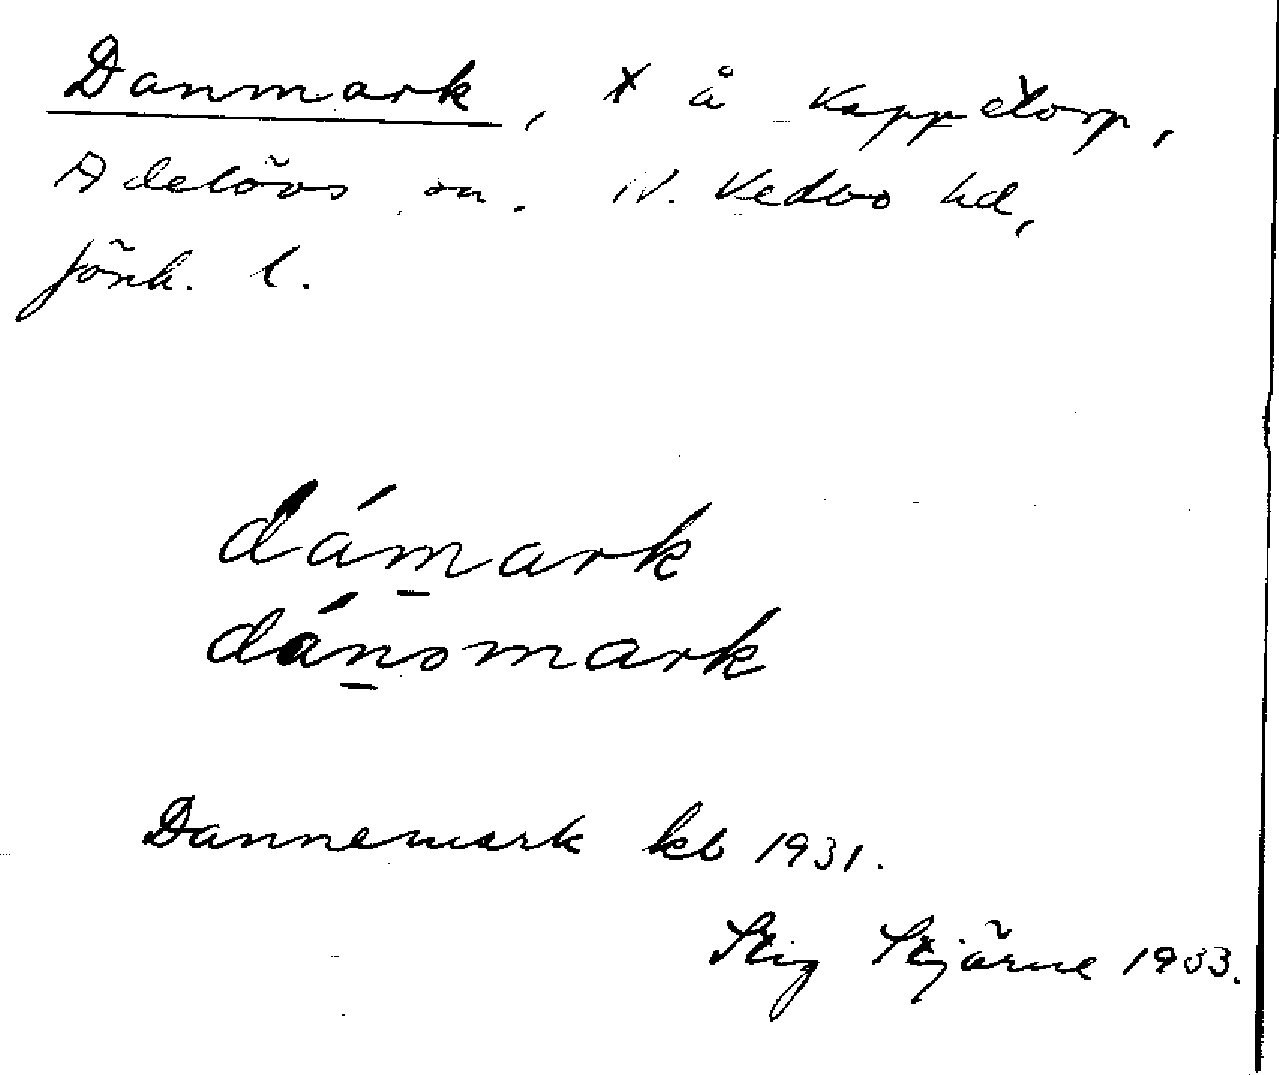 Danmark, x å Kappetorp,
Adelövs sn. N. Vedbo hd,
Jönk. l.
dám̲ark
dán̲ɔmark
Dannemark kb 1931.
Stig Stjärne 1933.